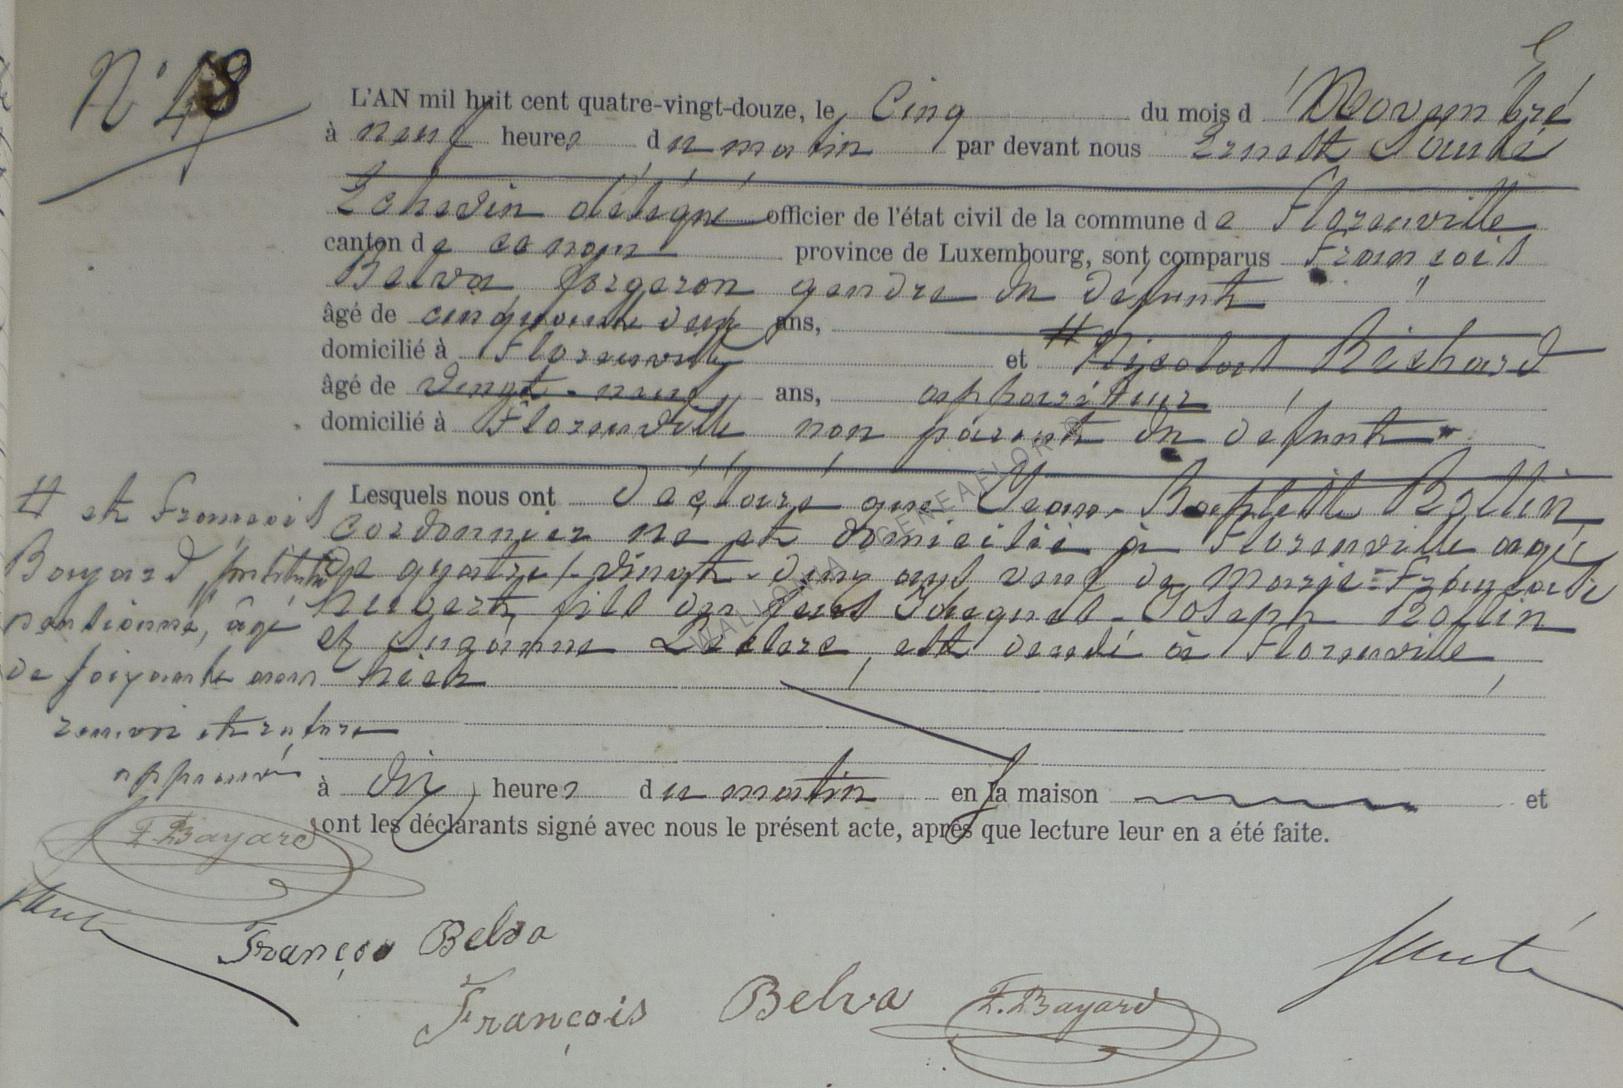 N° 48
L'AN mil huit cent quatre-vingt-douze, le Cinq du mois d Novembre
à neuf heures du matin par devant nous Ernest Santé
Echevin délégué officier de l'état civil de la commune de Florenville
canton de ce nom province de Luxembourg, sont comparus François
Belva forgeron gendre du défunt
âgé de cinquante deux ans,
domicilié à Florenville et # Nicolas Richard
âgé de vingt-neuf ans, appariteur
domicilié à Florenville non parent du défunt
Lesquels nous ont déclaré que Jean-Baptiste Rollin
cordonnier né et domicilié à Florenville agé
de quatre-vingt-deux ans veuf de Marie-Françoise
Hubert, fils des feus Jacques-Joseph Rollin
et Suzanne Leclere, est décédé à Florenville,
hier
à dix heures du matin en sa maison et
ont les déclarants signé avec nous le présent acte, après que lecture leur en a été faite.
# et François
Bayard, Instituteur
pensionné, âgé
de soixante ans
renvoi et rature
approuvé
F. Bayard
Santé
François Belva
François Belva F. Bayard
Santé
WALLONIA GENEAFLOR